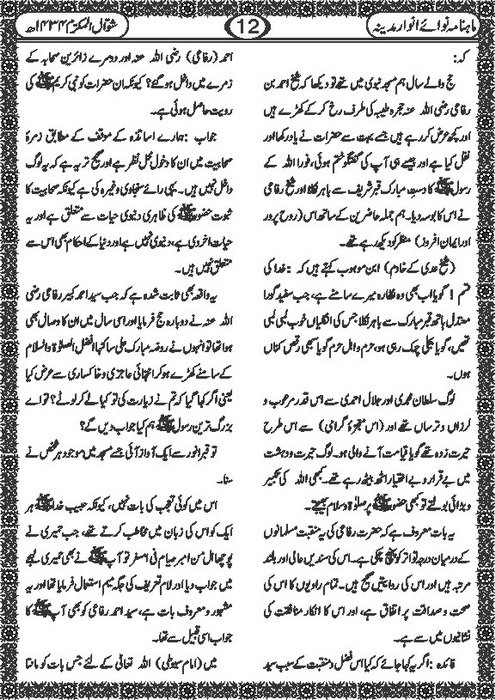 ماہنامہ نوائے انوار مدینہ
12
شوال المکرم ۱۴۳۴ھ
کہ:
حج والے سال ہم مسجد نبوی میں تھے تو دیکھا کہ شیخ احمد بن
رفاعی رضی اللہ عنہ حجرہ طیبہ کی طرف رخ کر کے کھڑے ہیں
اور کچھ عرض کر رہے ہیں جسے بہت سے حضرات نے یاد رکھا اور
نقل کیا ہے اور جیسے ہی آپ کی گفتگو ختم ہوئی، فوراً اللہ کے
رسول ﷺ کا دست مبارک قبر شریف سے باہر نکلا اور شیخ رفاعی
نے اس کا بوسہ دیا۔ ہم جملہ حاضرین کے ساتھ اس (روح پرور
اور ایمان افروز) منظر کو دیکھ رہے تھے۔
(شیخ عدی کے خادم) ابن موہوب کہتے ہیں کہ: خدا کی
قسم! گویا اب بھی وہ نظارہ میرے سامنے ہے، جب سفید گورا
معتدل ہاتھ قبر مبارک سے باہر نکلا جس کی انگلیاں خوب لمبی لمبی
تھیں، گویا بجلی چمک رہی ہو، حرم و اہل حرم گویا سبھی رقص کناں
ہوں۔
لوگ سلطان محمدی اور جلال احمدی سے اس قدر مرعوب و
لرزاں و ترساں تھے اور (اس معجزۂ گرامی) سے اس طرح
حیرت زدہ تھے گویا قیامت آنے والی ہو۔ لوگ حیرت و دہشت
میں بے قرار و بے اختیار اٹھ بیٹھ رہے تھے۔ کبھی اللہ کی تکبیر
و بڑائی بولتے تو کبھی حضور ﷺ پر صلوٰۃ وسلام بھیجتے۔
یہ بات معروف ہے کہ حضرت رفاعی کی یہ منقبت مسلمانوں
کے درمیان درجہ تواتر کو پہنچ چکی ہے۔ اس کی سندیں عالی اور بلند
مرتبہ ہیں اور اس کی روایتیں صحیح ہیں۔ تمام راویوں کا اس کی
صحت و صداقت پر اتفاق ہے، اور اس کا انکار منافقت کی
نشانیوں میں سے ہے۔
فائدہ: اگر یہ کہا جائے کہ کیا اس فضل و منقبت کے سبب سید
احمد (رفاعی) رضی اللہ عنہ اور دوسرے زائرین صحابہ کے
زمرے میں داخل ہو گئے؟ کیونکہ ان حضرات کو نبی کریم ﷺ کی
رویت حاصل ہوئی ہے۔
جواب: ہمارے اساتذہ کے موقف کے مطابق زمرۂ
صحابیت میں ان کا دخول محل نظر ہے اور صحیح تر یہ ہے کہ یہ لوگ
داخل نہیں ہیں۔ یہی رائے سخاوی وغیرہ کی ہے کیونکہ صحابیت کا
ثبوت حضور ﷺ کی ظاہری دنیوی حیات سے متعلق ہے اور یہ
حیات اخروی ہے، دنیوی نہیں ہے اور دنیا کے احکام بھی اس سے
متعلق نہیں ہیں۔
یہ واقعہ بھی ثابت شدہ ہے کہ جب سید احمد کبیر رفاعی رضی
اللہ عنہ نے دوبارہ حج فرمایا اور اسی سال میں ان کا وصال بھی
ہوا تھا تو انہوں نے روضہ مبارک علی ساکنہا افضل الصلوٰۃ والسلام
کے سامنے کھڑے ہو کر انتہائی عاجزی و خاکساری سے عرض کیا
یعنی اگر کہا گیا کہ تم نے زیارت کی تو کیا لے کر لوٹے؟ تو اے
بزرگ ترین رسول ﷺ ہم کیا جواب دیں گے؟
تو قبر انور سے ایک آواز آئی جسے مسجد میں موجود ہر شخص نے
سنا۔
اس میں کوئی تعجب کی بات نہیں، کیونکہ حبیب خدا ﷺ ہر
ایک کو اس کی زبان میں مخاطب کرتے تھے، جب حمیری نے
پوچھا امن امبر صیام فی امسفر تو آپ ﷺ نے بھی حمیری لہجے
میں جواب دیا اور لام تعریف کی جگہ میم استعمال فرمایا تھا اور یہ
مشہور و معروف بات ہے، سید احمد رفاعی کو بھی آپ ﷺ کا
جواب اسی قبیل سے تھا۔
میں (امام سیوطی) اللہ تعالیٰ کے لئے جس بات کو مانتا